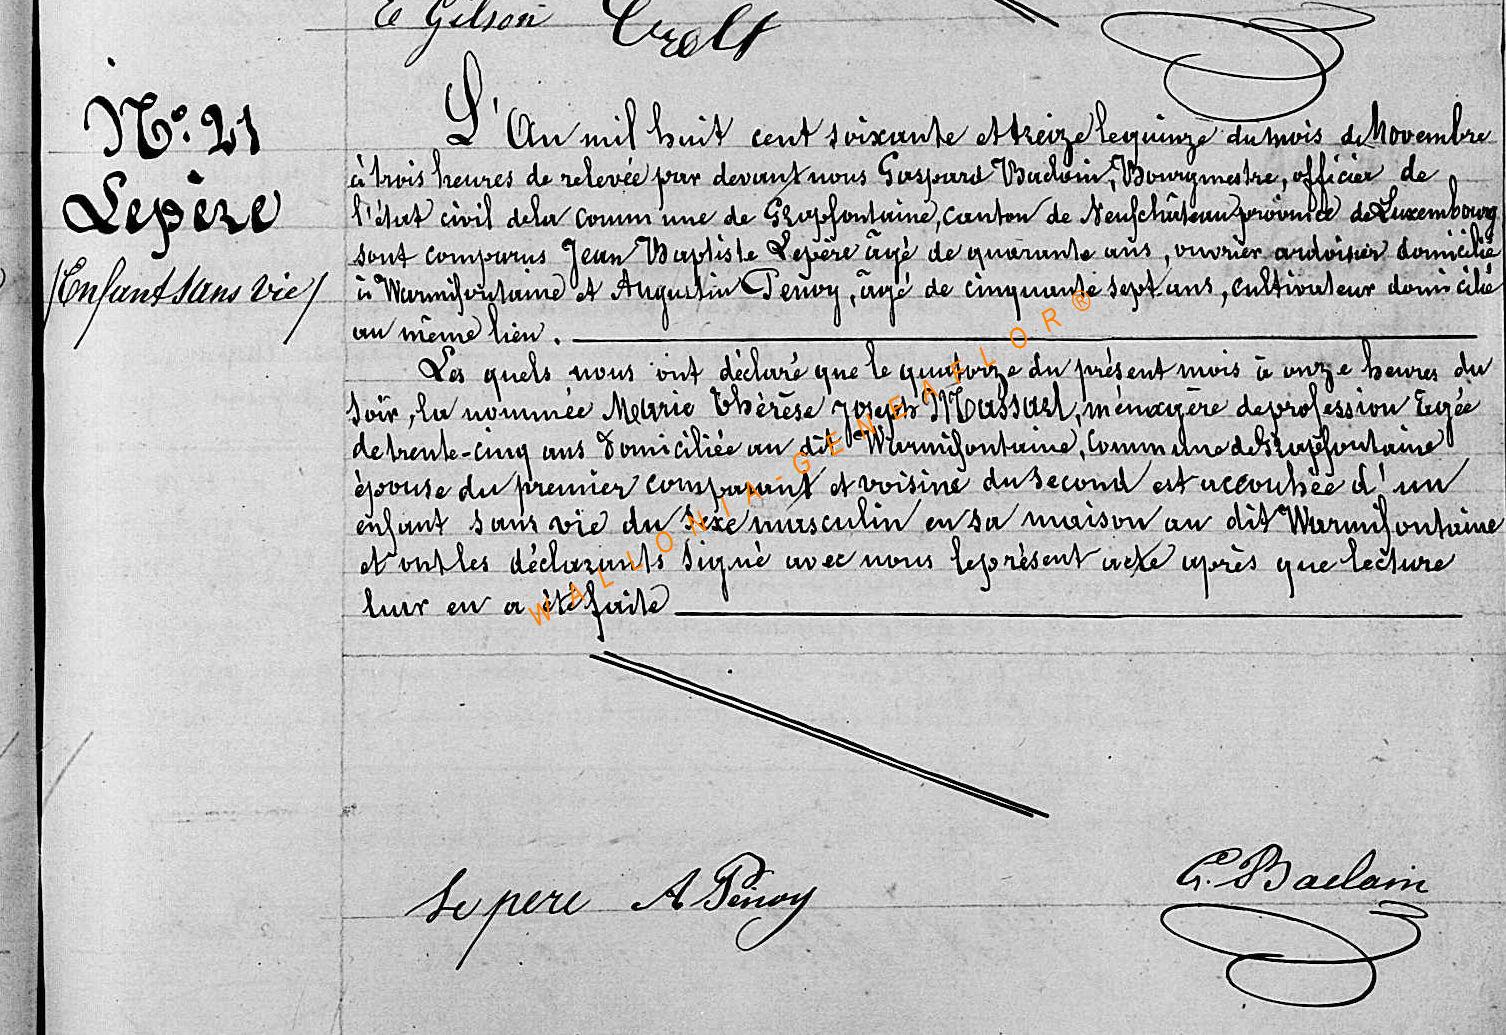 e Gilson Crolt
N°. 21
Lepère
(Enfant sans vie)
L'An mil huit cent soixante et treize le quinze du mois de Novembre
à trois heures de relevée par devant nous Gaspard Baclain, Bourgmestre, officier de
l'état civil de la commune de Grapfontaine, canton de Neufchâteau province de Luxembourg
sont comparus Jean Baptiste Lepère âgé de quarante ans, ouvrier ardoisier domicilié
à Warmifontaine et Augustin Penoy, âgé de cinquante sept ans, cultivateur domicilié
au même lieu.
Les quels nous ont déclaré que le quatorze du présent mois à onze heures du
soir, la nommée Marie Thérèse Joseph Massart, ménagère de profession âgée
de trente-cinq ans domiciliée au dit Warmifontaine, commune de Grapfontaine
épouse du premier comparant et voisine du second est accouchée d'un
enfant sans vie du sexe masculin en sa maison au dit Warmifontaine
et ont les déclarants signé avec nous le présent acte après que lecture
leur en a été faite
WALLONIA-GENEAFLOR®
Lepere A Pènoy G. Baclain